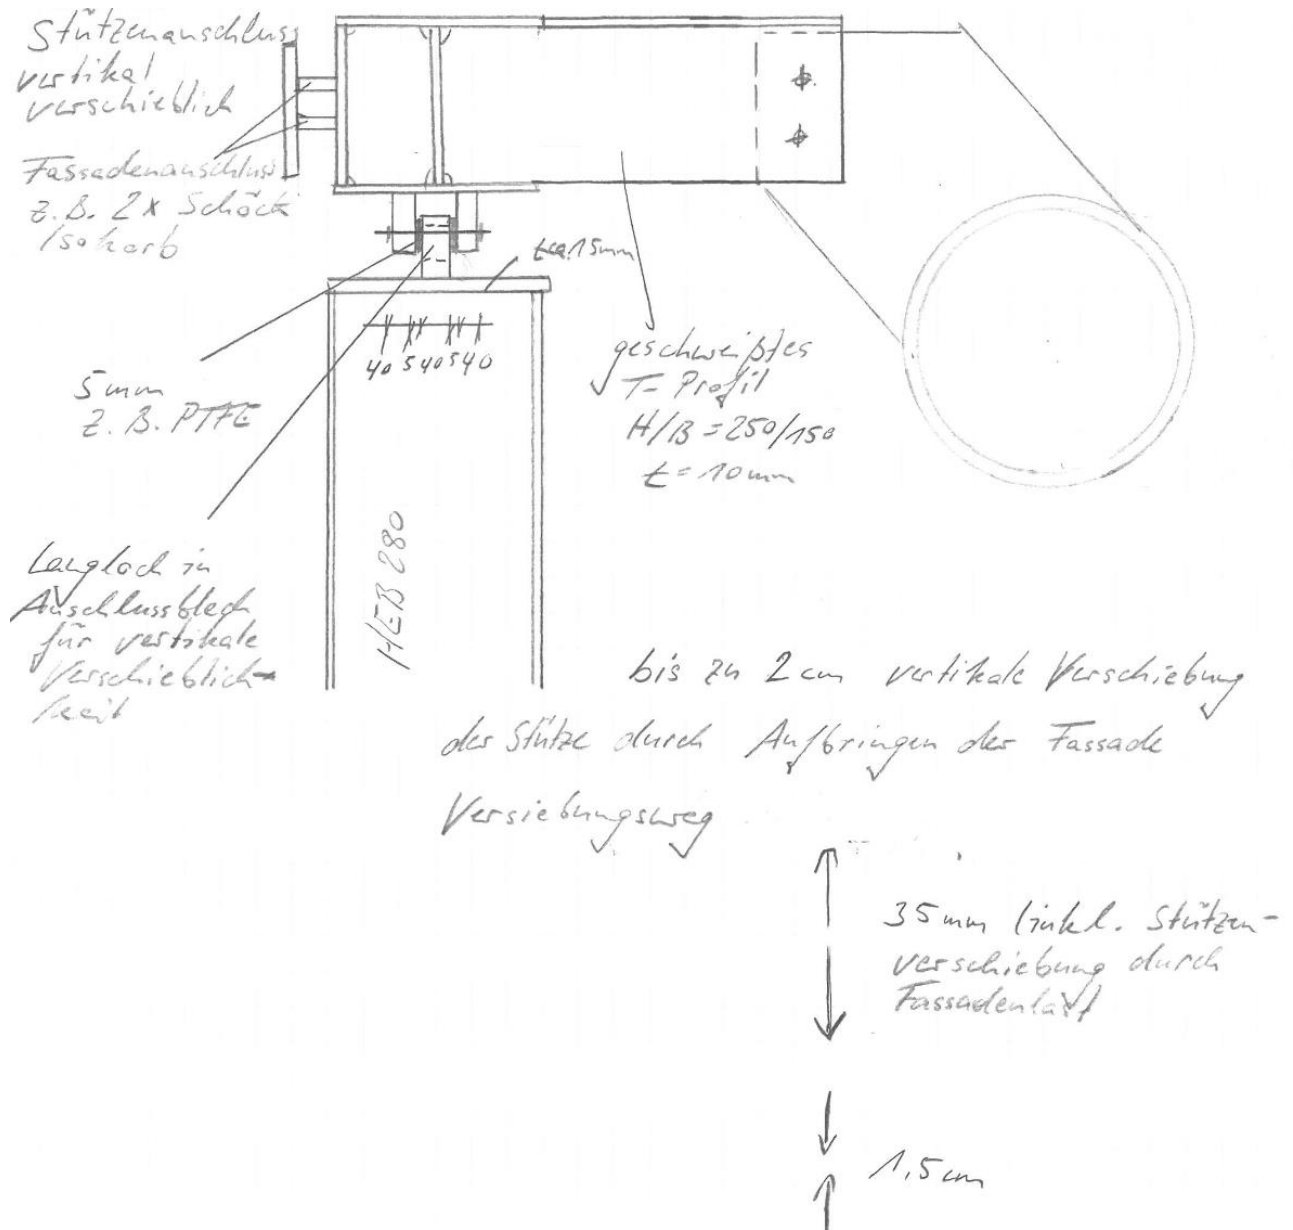 Stützenanschluss
vertikal
verschieblich
Fassadenanschluss
z.B. 2x Schöck
Isokorb
t=ca.15mm
40 5 40 5 40
5mm
z.B. PTFE
geschweißtes
T-Profil
H/B=250/150
t=10mm
HEB 280
Langloch in
Anschlussblech
für vertikale
Verschieblich-
keit
bis zu 2cm vertikale Verschiebung
der Stütze durch Aufbringen der Fassade
Versiebungsweg
35mm (inkl. Stützen-
verschiebung durch
Fassadenlast
1,5cm